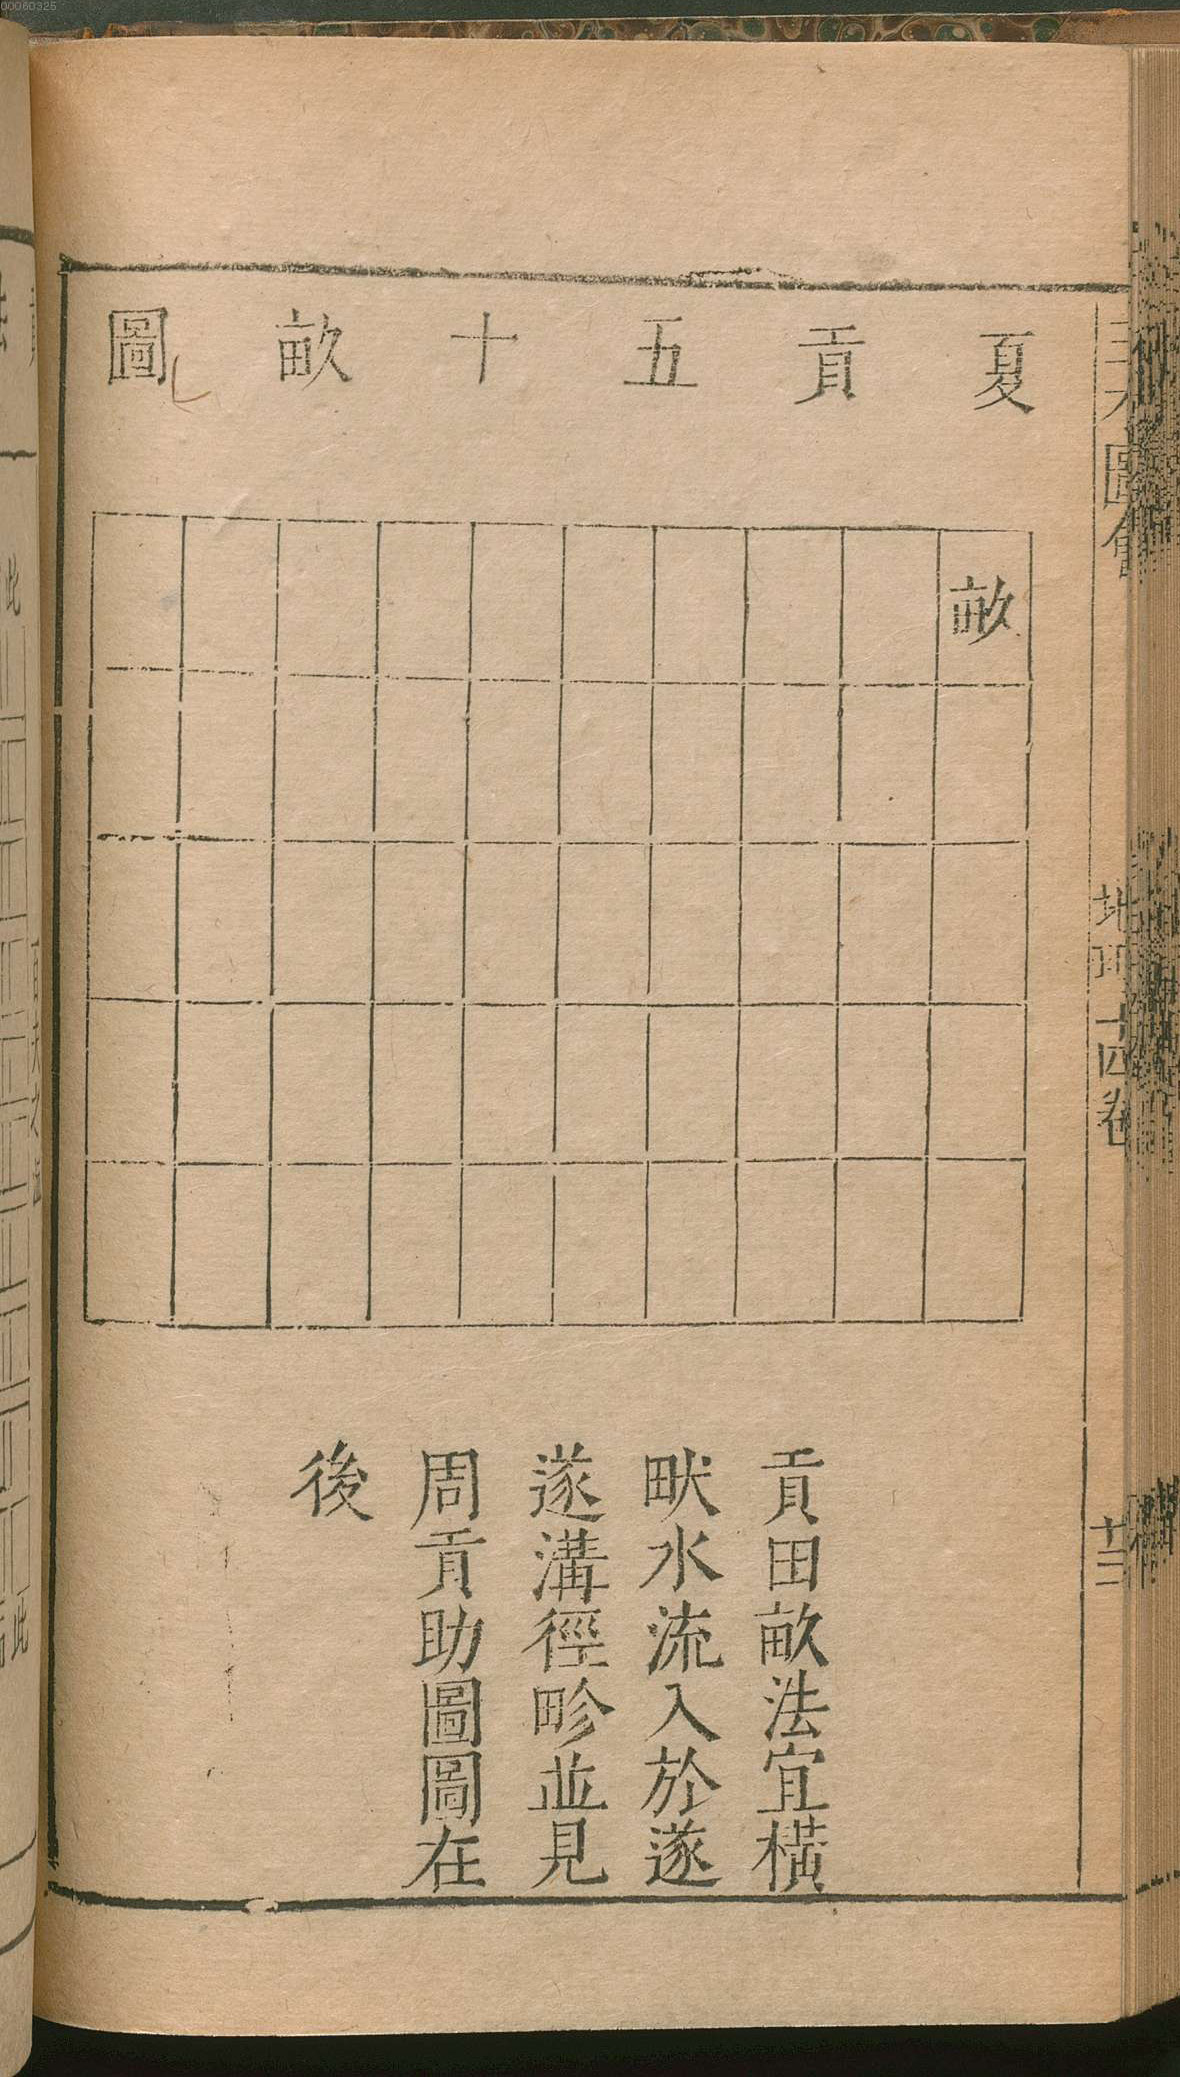 00060325
三才圖會
地理十四卷
廿三
夏貢五十畝圖
畝
貢田畝法宜橫
畎水流入於遂
遂溝徑畛並見
周貢助圖圖在
後